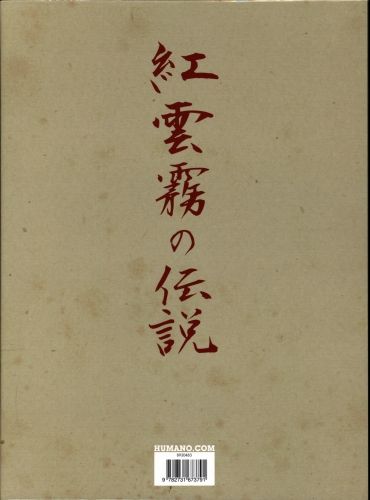 紅雲霧の伝説
HUMANO.COM
9 782731 673791